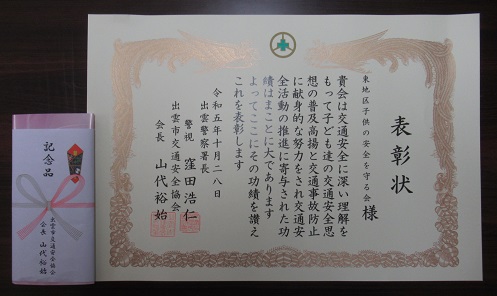 表彰状
東地区子供の安全を守る会 様
貴会は交通安全に深い理解を
もって子ども達の交通安全思
想の普及高揚と交通事故防止
に献身的な努力をされ交通安
全活動の推進に寄与された功
績はまことに大であります
よってここにその功績を讃え
これを表彰します
令和五年十月二八日
出雲警察署長
警視 窪田浩仁
出雲市交通安全協会
会長 山代裕始
記念品
出雲市交通安全協会
会長 山代裕始